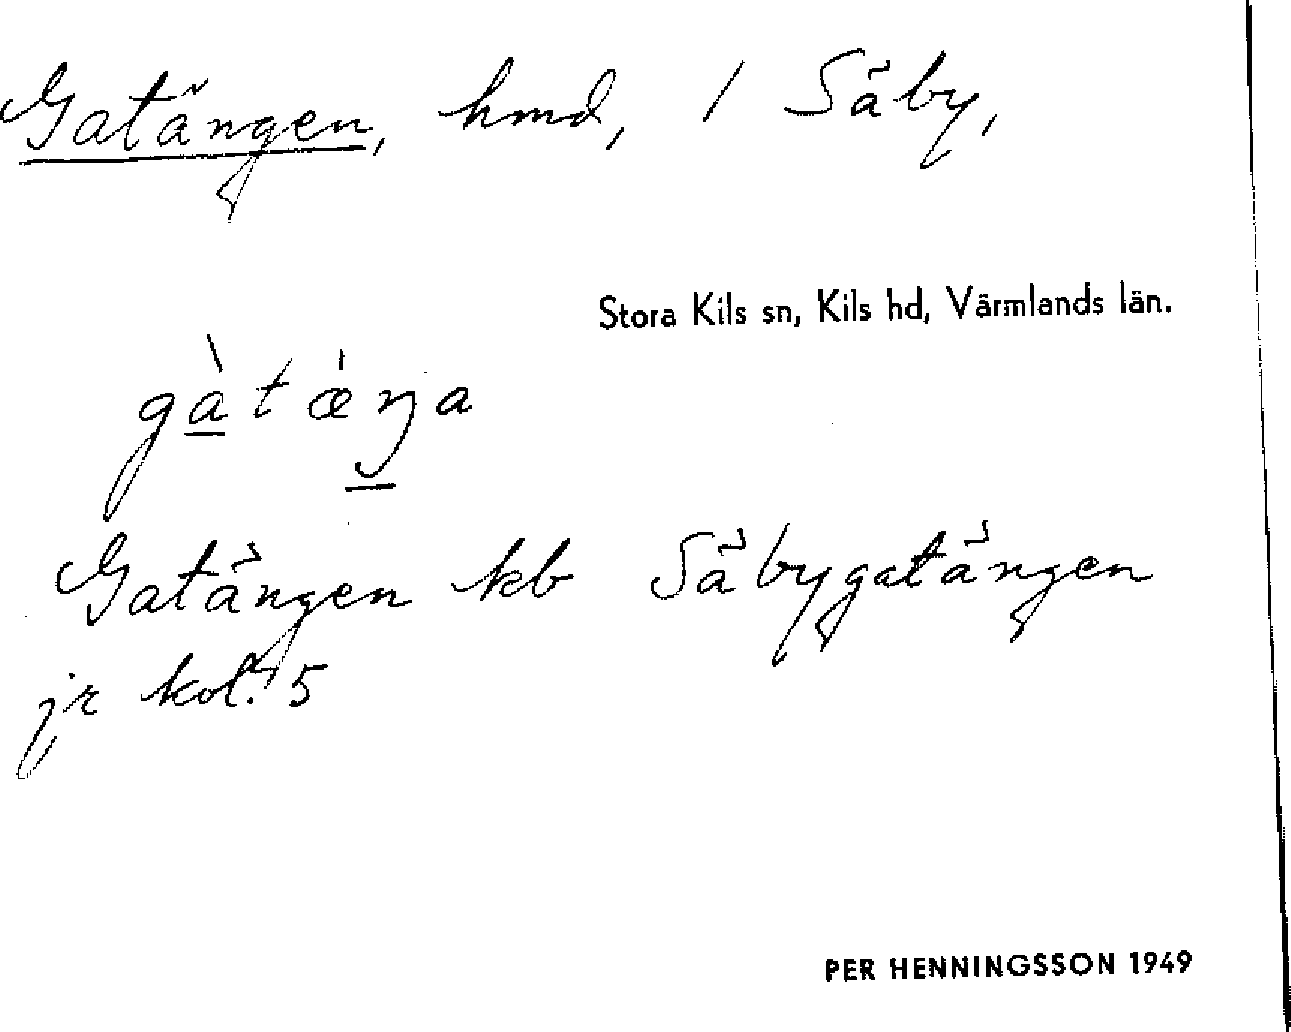 Gatängen, hmd, 1 Säby,
Stora Kils sn, Kils hd, Värmlands län.
gàtæ̍ŋa
Gatängen kb Säbygatängen
jr kol. 5
PER HENNINGSSON 1949